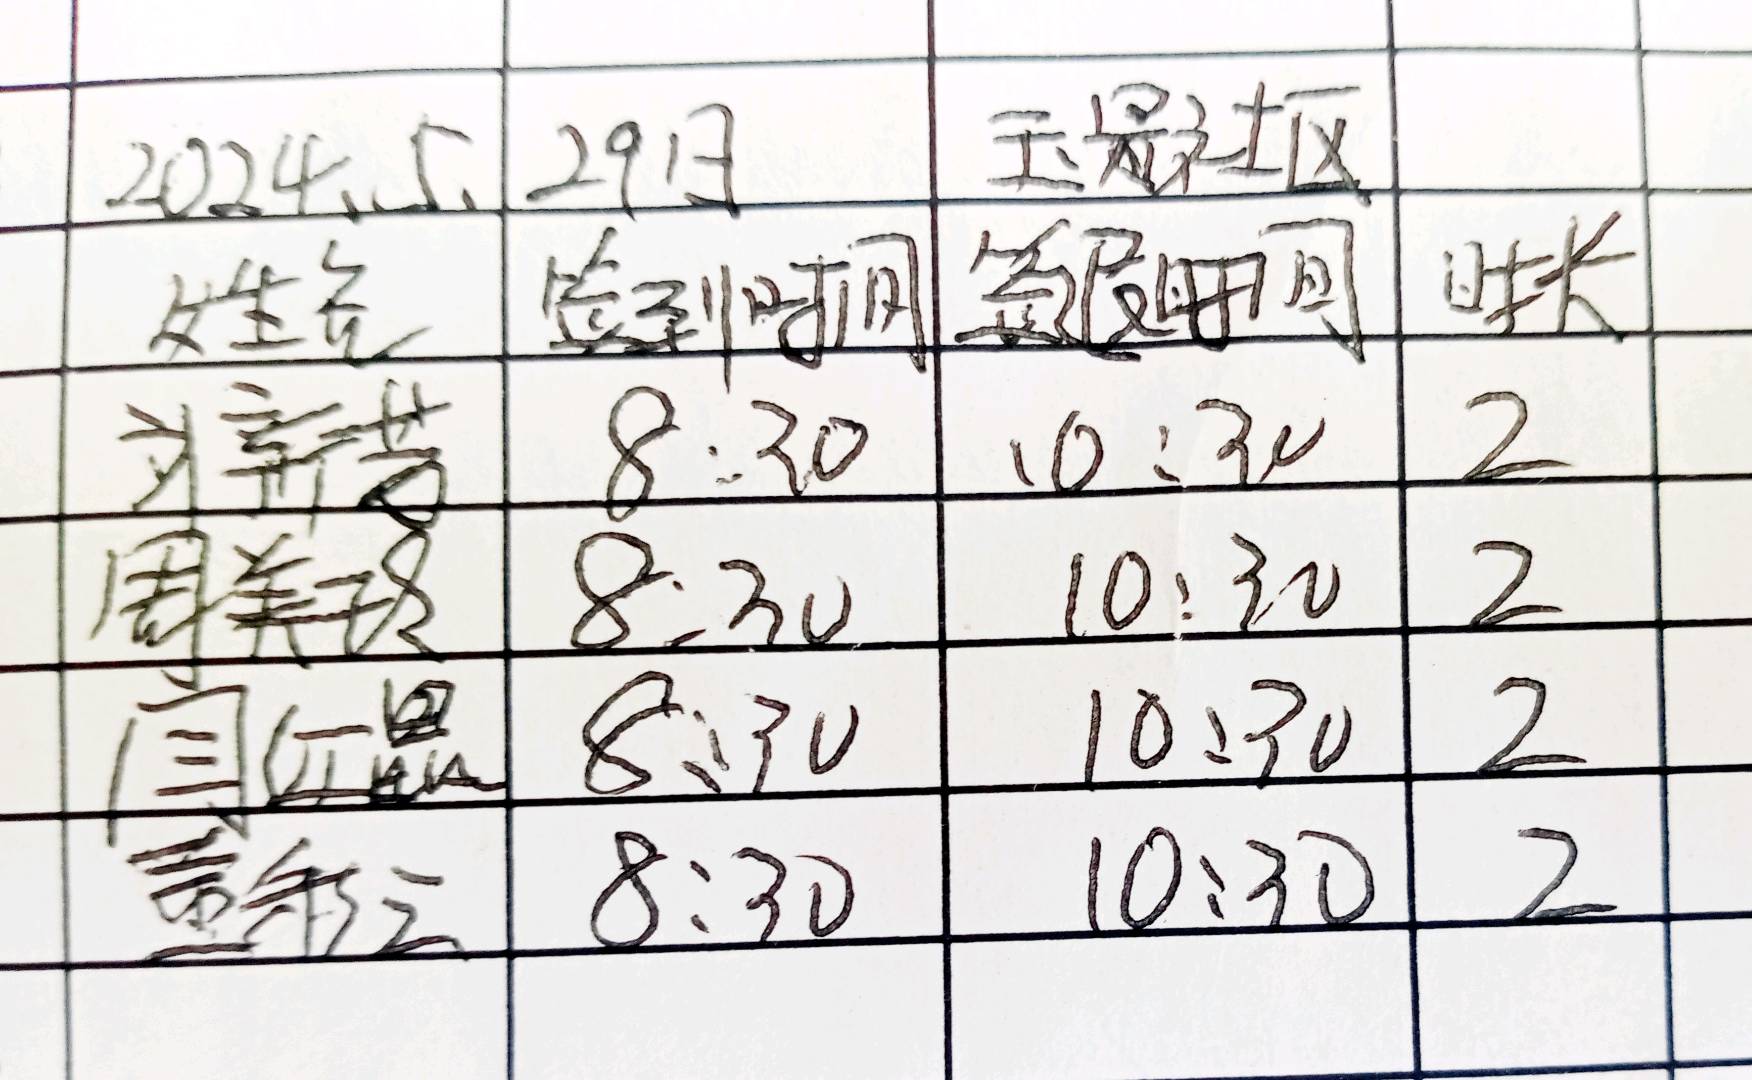 2024.5. 29日 玉泉社区
姓名 签到时间 签退时间 时长
刘新芳 8:30 10:30 2
周美玲 8:30 10:30 2
闫红昆 8:30 10:30 2
董彩云 8:30 10:30 2